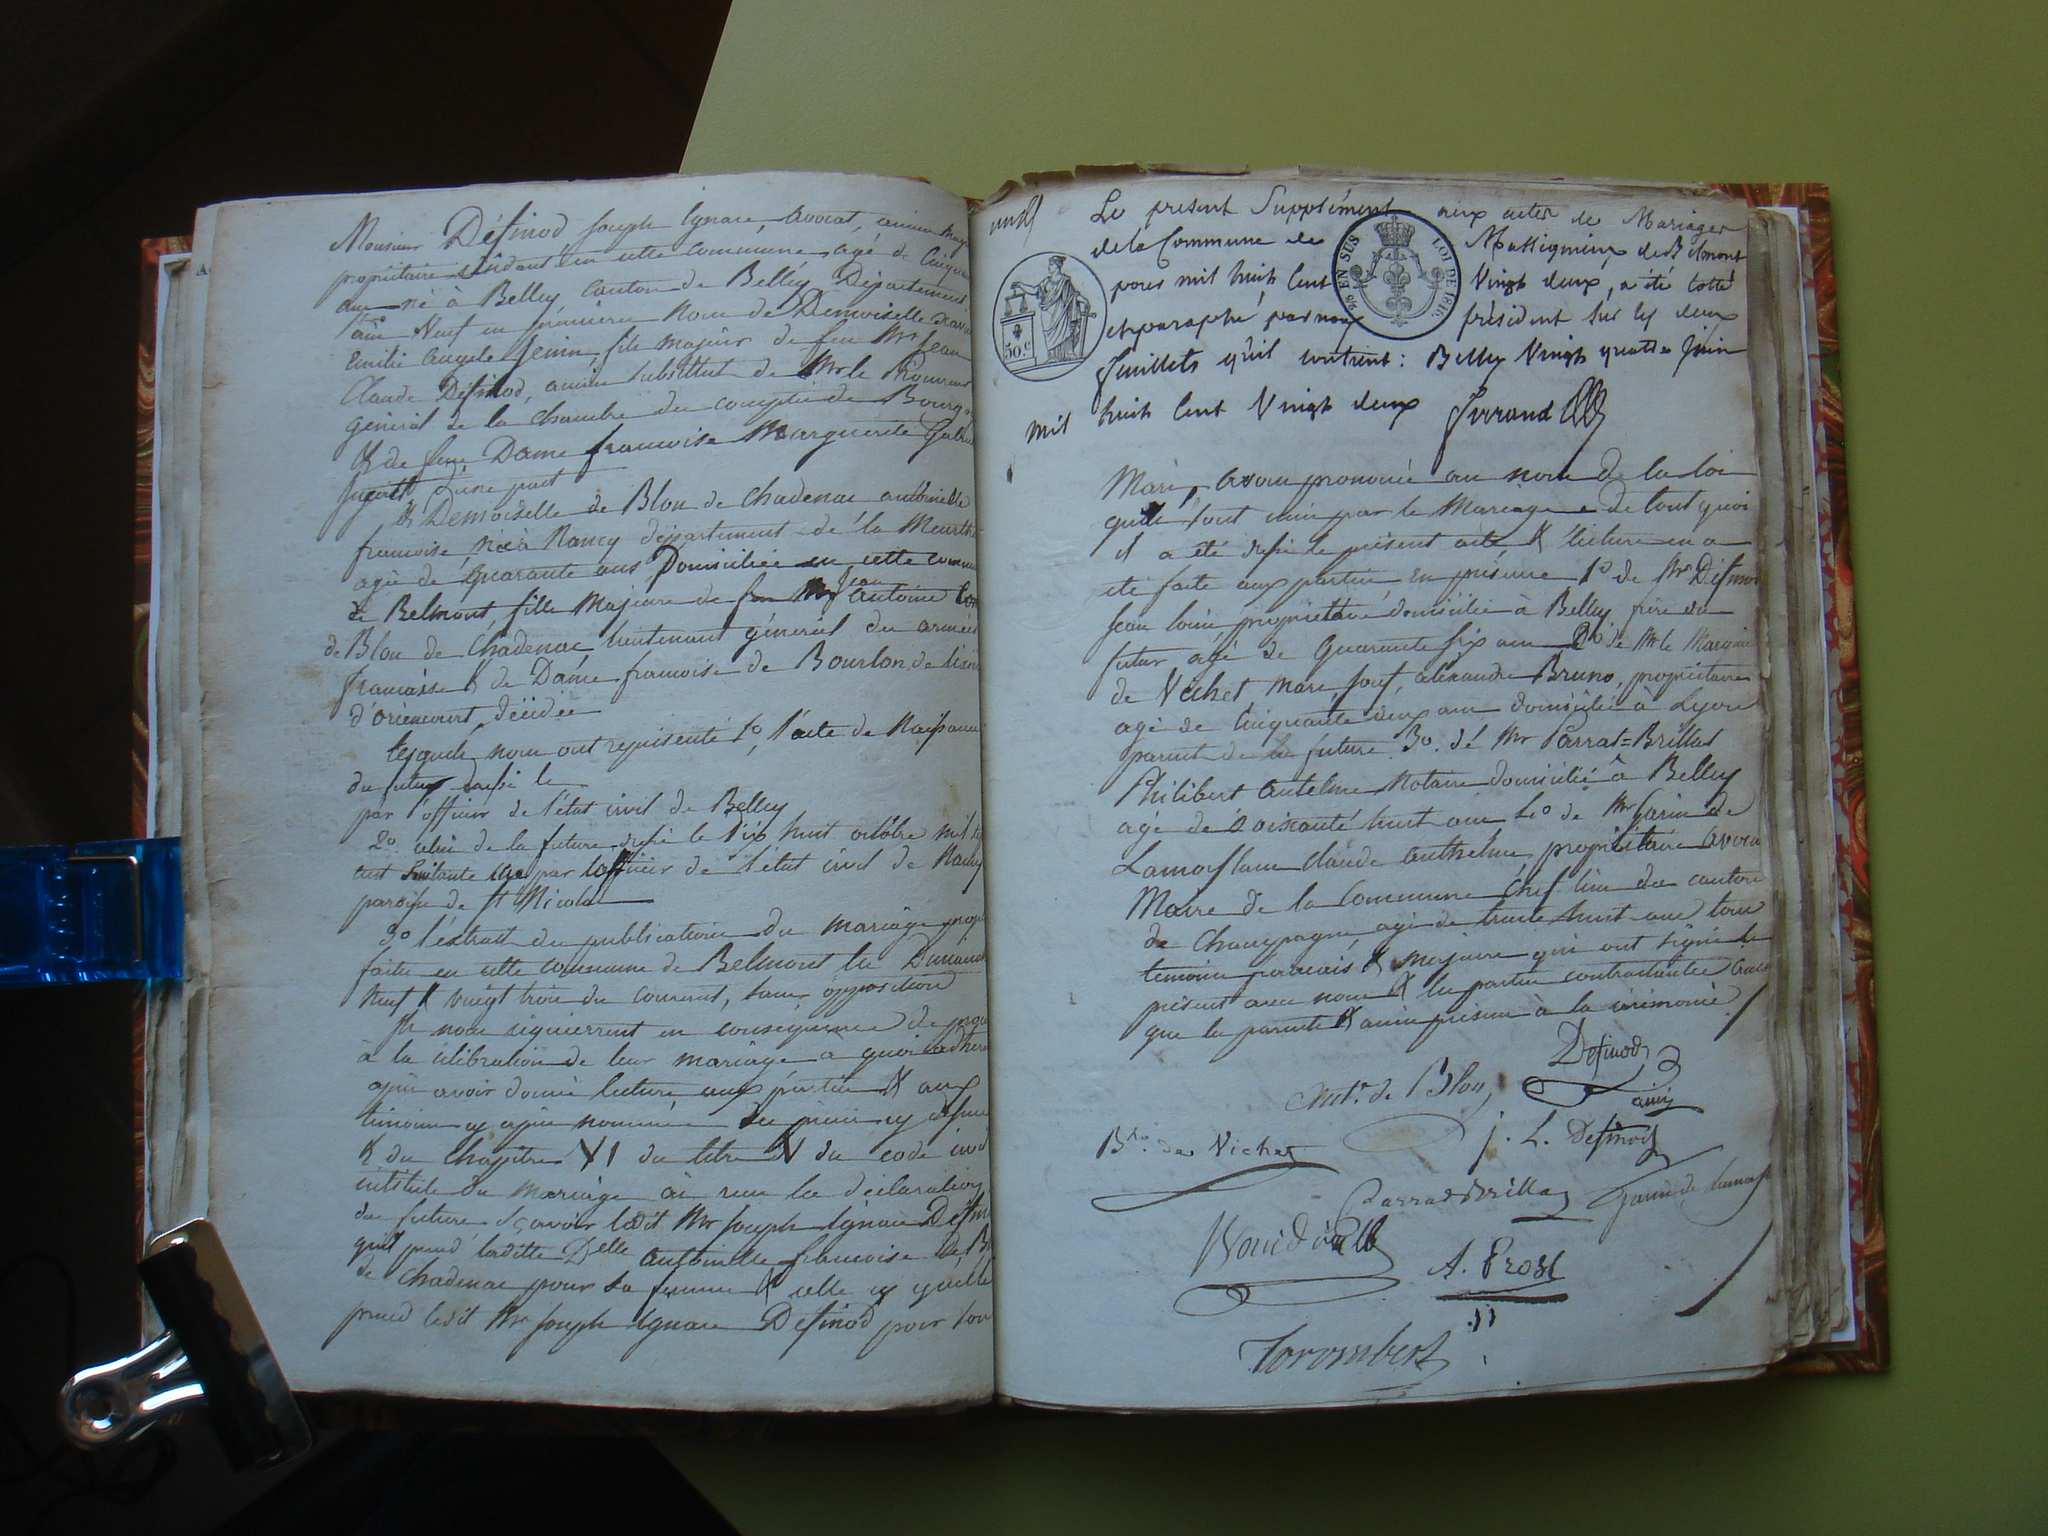 Monsieur Desinod Joseph Ignace, avocat, ancien
propriétaire résidant en cette commune agé de
ans né à Belley, canton de Belley Département
l'ain Veuf en première Noce de Demoiselle
Emilie angele Jenin, fils majeur de feu Mr Jean
Claude Desinod, ancien substitut de Mr le Procureur
général de la chambre des comptes de
& de feue Dame francoise Marguerite
d'une part
& Demoiselle de Blou de Chadenac antoinette
francoise, née à Nancy département de la Meurthe
agée de quarante ans Domiciliée en cette commune
de Belmont, fille Majeure de feu Mr Jean antoine
de Blou de Chadenac lieutenant général des armées
francaises & de Dame francoise de Bourlon de
d'oriancourt, décédée
lesquels nous ont représenté 1o, l'acte de Naissance
du futur dressé le
par l'officier de l'état civil de Belley
2o celui de la future dressé le dix huit octobre mil
cent par l'officier de l'état civil de Nancy
paroisse de St Nicolas
3o l'extrait des publications du mariage
faites en cette commune de Belmont les Dimanches
Neuf & vingt trois du courant, sans opposition
& nous requierrent en conséquence de
à la célébration de leur mariage a quoi
après avoir donné lecture aux parties & aux
témoins cy après nommés des pièces cy dessus
& du chapitre VI du titre V du code civil
intitulé du mariage ai recu la declaration
des futurs sçavoir ledit Mr Joseph Ignace
qu'il prend laditte Delle antoinette francoise de
de Chadenac pour sa femme & celle cy qu'elle
prend ledit Mr Joseph Ignace Desinod pour son
Le present Supplément aux actes de Mariages
de la Commune de Massignieux de Belmont
pour mil huit Cent Vingt deux, a été cotté
et paraphé par nous président sur les deux
feuillets qu'il contient : Belley Vingt quatre Juin
mil huit Cent Vingt deux Ferrand
50.c
EN SUS LOI DE 1816
Mari, avons prononcé au nom de la loi
qu'ils sont unis par le Mariage de tout quoi
il a été dressé le présent acte & lecture en a
eté faite aux parties, en présence 1o de Mr
Jean louis propriétaire domicilié à Belley frère du
futur agé de quarante six ans 2o de Mr le Marquis
de Vichet Marc Josef, alexandre Bruno, propriétaire
agé de cinquante deux ans domicilié à Lyon
parent de la future 3o. de Mr Parrat=Brillat
Philibert antelme Notaire domicilié à Belley
agé de soixante huit ans 4o de Mr Garin de
Lamorflanc claude anthelme, propriétaire
Maire de la Commune Chef lieu du canton
de Champagne agé de trente huit ans tous
temoins francais & majeurs qui ont signé le
présent avec nous & les parties contractantes
que les parents & amis présens à la cérémonie
Desinod
ainé
Antte. de Blou
Bno. de Vichet
J. L. Desinod
Parrat Brillat
Garin de Lamorf
A. Prost
Torombert